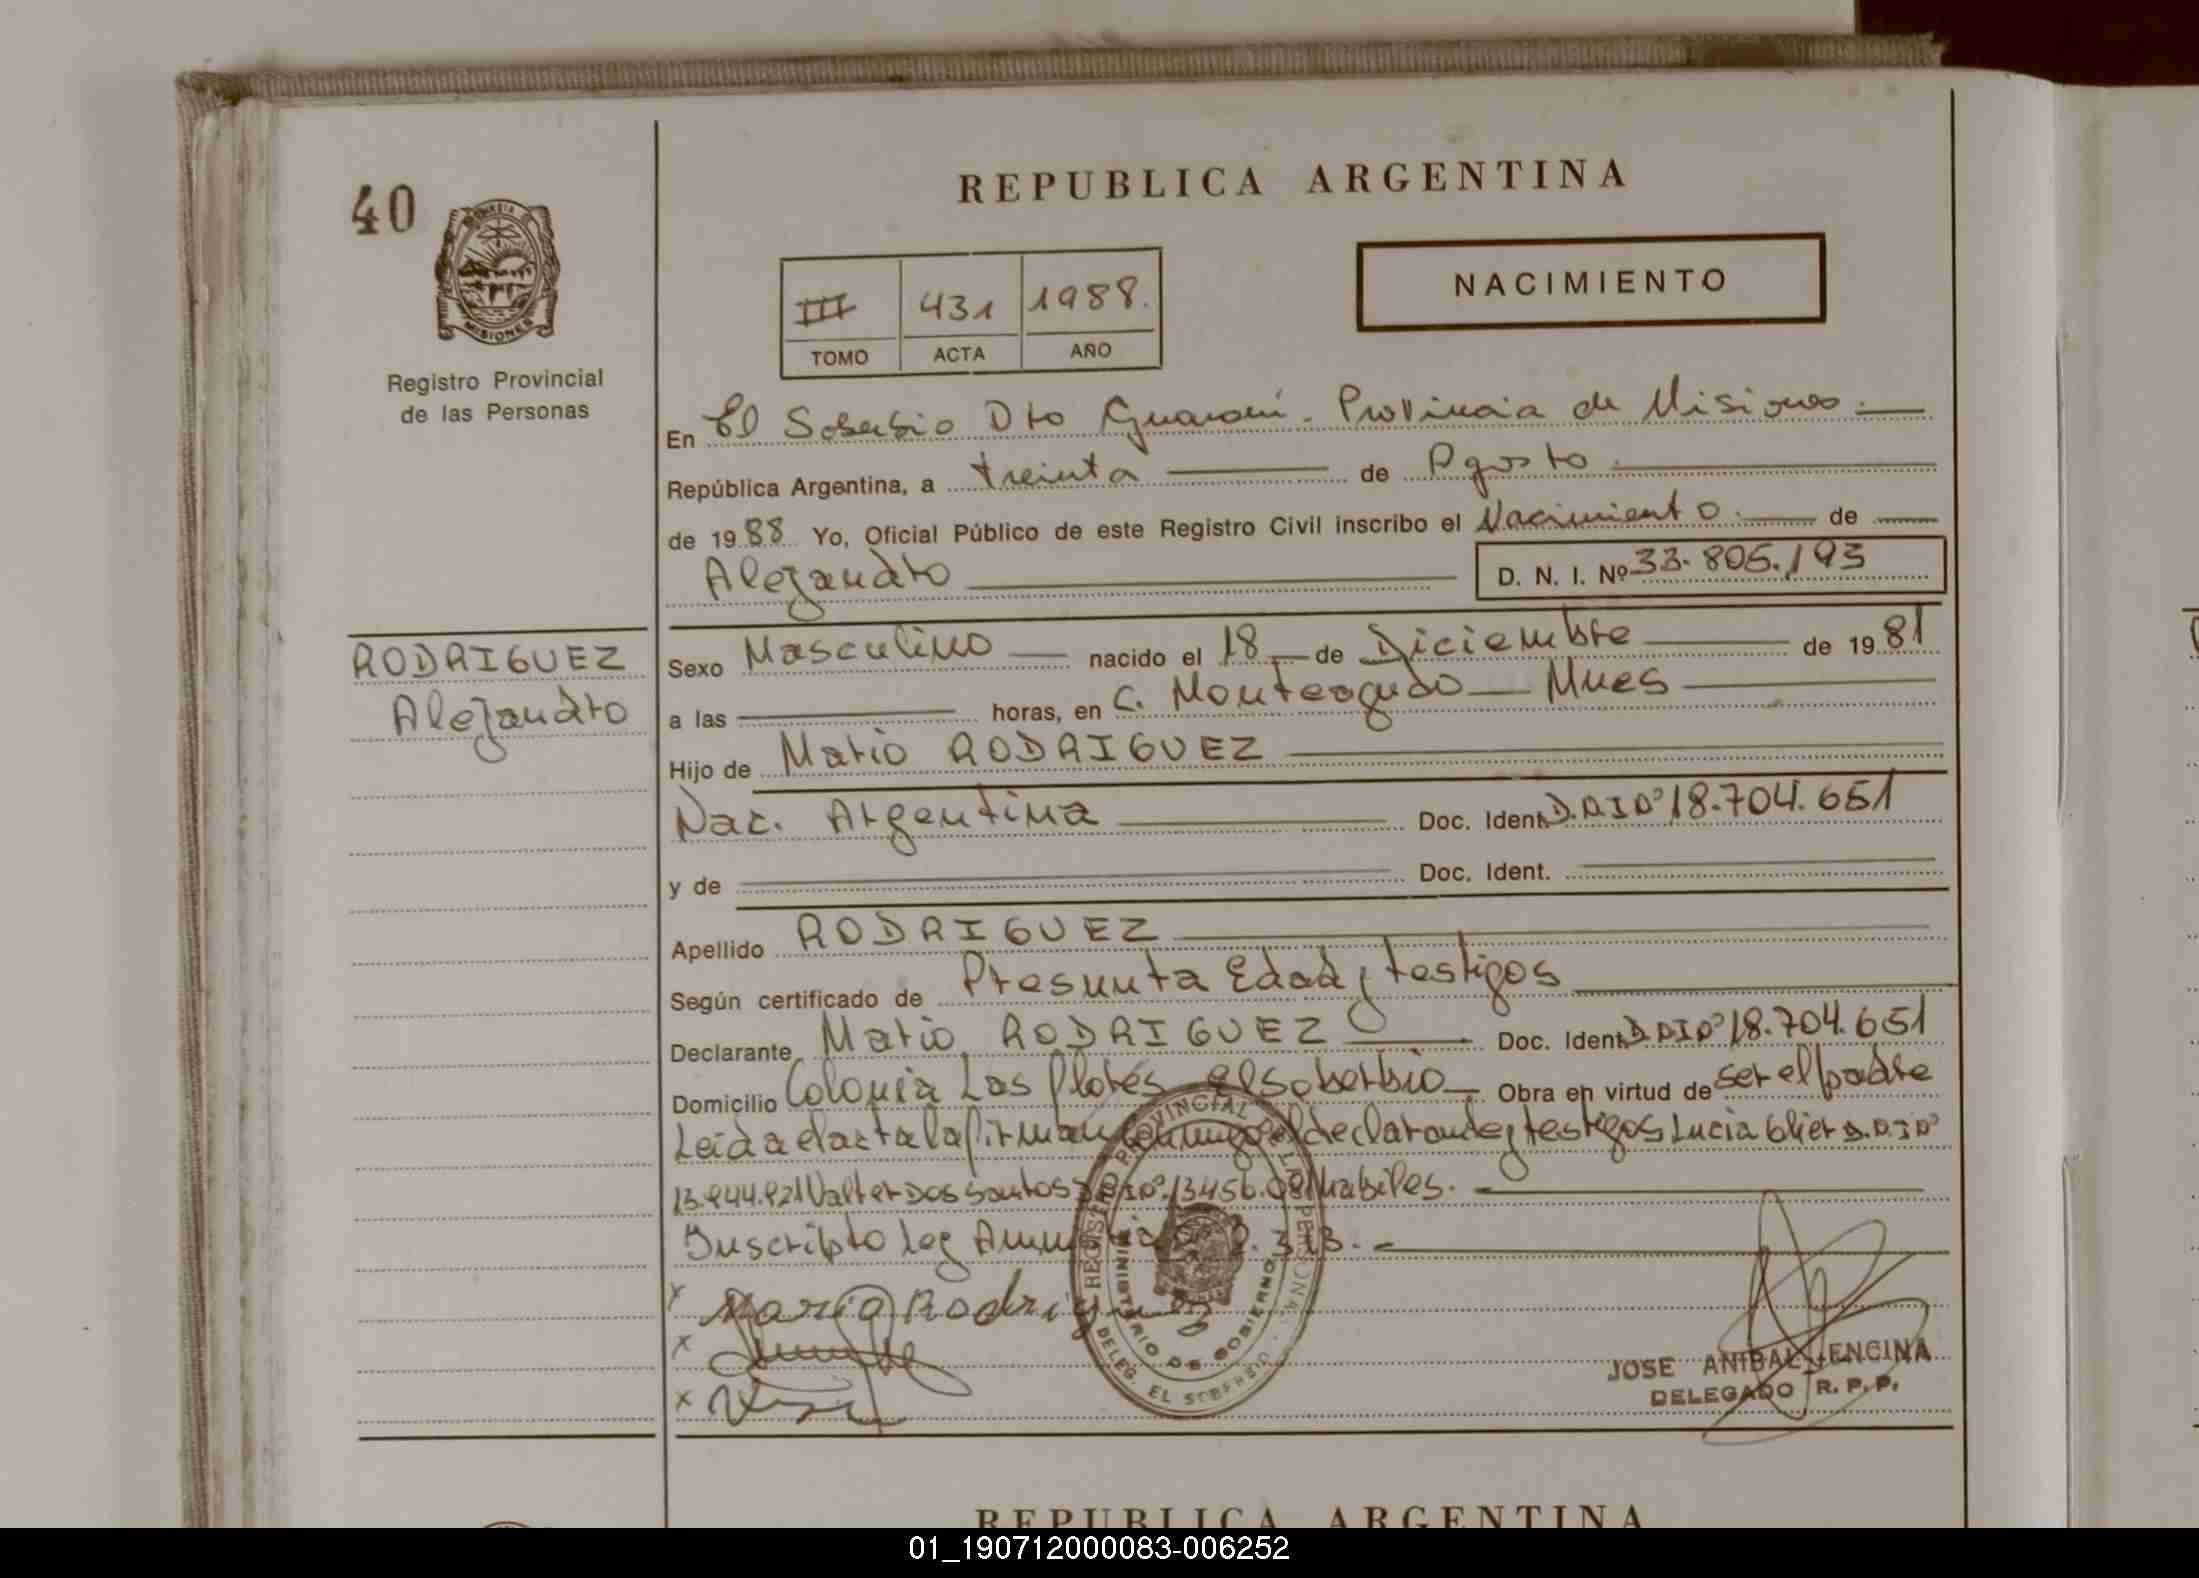 40
PROVINCIA DE
MISIONES
Registro Provincial
de las Personas
REPUBLICA ARGENTINA
III 431 1988.
TOMO ACTA AÑO
NACIMIENTO
En El Soberbio Dto Guaraní. Provincia de Misiones.
República Argentina, a treinta de Agosto.
de 1988 Yo, Oficial Público de este Registro Civil inscribo el Nacimiento. de
Alejandro D. N. I. Nº 33.805.193
RODRIGUEZ
Alejandro
Sexo Masculino nacido el 18 de Diciembre de 1981
a las horas, en C. Monteagudo Mnes
Hijo de Mario RODRIGUEZ
Nac. Argentina Doc. Ident. D.N.I.Nº 18.704.651
y de Doc. Ident.
Apellido RODRIGUEZ
Según certificado de Presunta Edad y testigos
Declarante Mario RODRIGUEZ Doc. Ident. D.N.I.Nº 18.704.651
Domicilio Colonia Las Flores el soberbio Obra en virtud de ser el padre
Leida el acta la firman conmigo el declarante y testigos Lucia D.N.I.Nº
Valter Dos Santos D.N.I.Nº habiles.
Inscripto Ley
x Mario Rodriguez
x
x
REGISTRO PROVINCIAL DE LAS PERSONAS
MINISTERIO DE GOBIERNO
DELEG. EL SOBERBIO
JOSE ANIBAL ENCINA
DELEGADO R. P. P.
REPUBLICA ARGENTINA
01_190712000083-006252